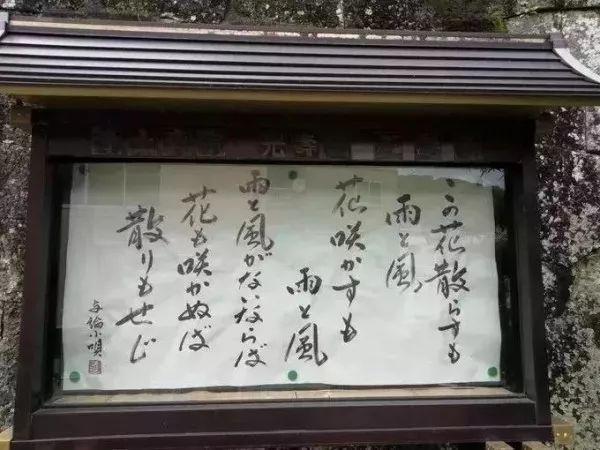 この花散らすも
雨と風
花咲かすも
雨と風
雨と風がないならば
花も咲かねば
散りもせじ
小唄